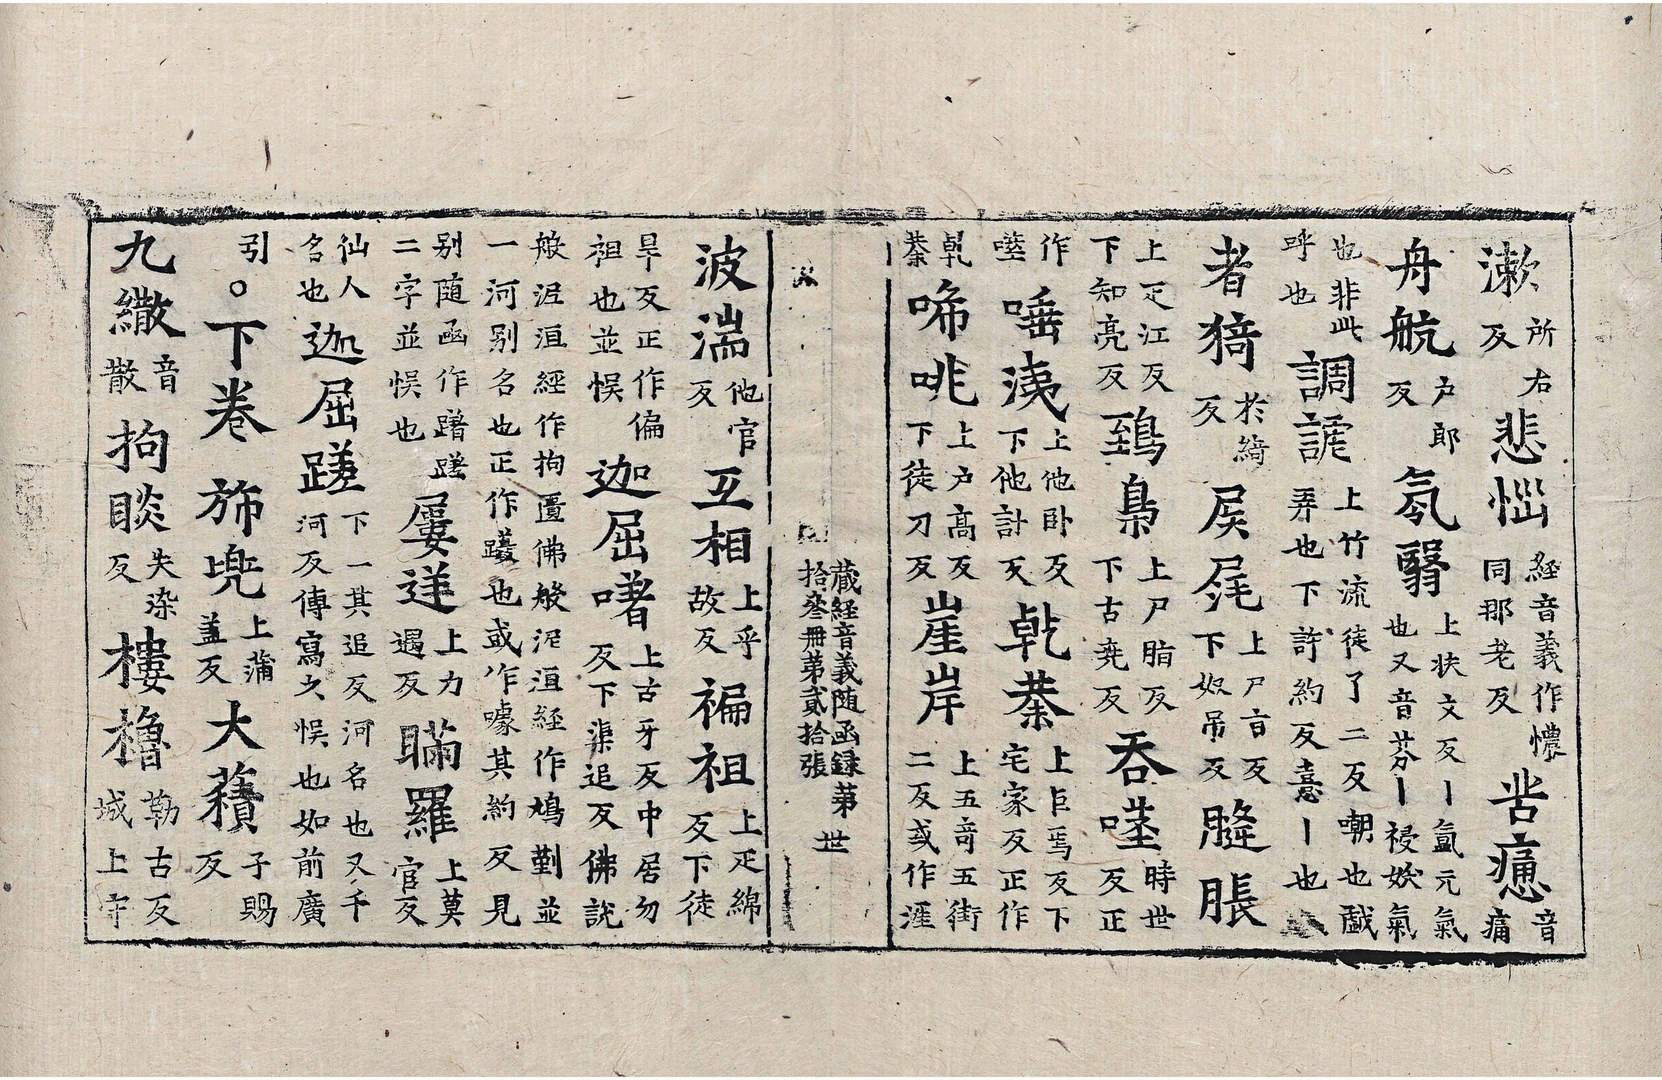 漱所右反悲惱経音義作憹同那老反㫮㾯音痛
舟航户郎反氛翳上扶文反丨氲元氣也又音芬丨祲妖氣
也非此呼也調謔上竹流徒了二反嘲也戲弄也下許約反憙丨也
者猗於綺反㞋㞙上尸旨反下奴吊反膖脹
上疋江反下知亮反鵄梟上尸脂反下古堯反吞噬時世反正
作㗭唾洟上他卧反下他計反乹㯥上巨焉反下宅家反正作
乹㯥啼咷上户高反下徒刀反崖岸上五竒五街二反或作涯
蔵経音義随函録第卋
拾叁冊第貳拾張
波湍他官反互相上乎故反褊袒上疋綿反下徒
旱反正作偏袒也並悮迦屈嗜上古牙反中居勿反下渠追反佛說
般泥洹經作拘遺佛般泥洹経作鳩㔁並一河别名也正作䠥也或作㘌其約反見
别随函作蹃蹉二字並悮也屢送上力遇反瞞羅上莫官反
仙人名也迦屈蹉下一其追反河名也又千河反傳寫久悮也如前廣
引○下卷斾兠上蒲盖反大積子賜反
九繖音散拘睒失染反樓櫓勒古反城上守